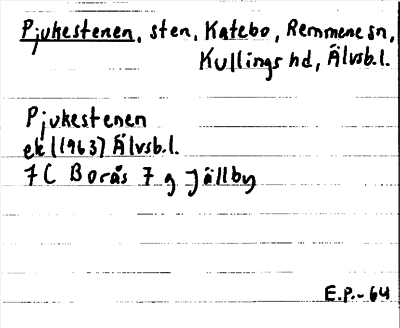 Pjukestenen, sten, Katebo, Remmene sn,
Kullings hd, Älvsb.l.
Pjukestenen
ek (1963) Älvsb.l.
7C Borås 7 g Jällby
E.P.-64